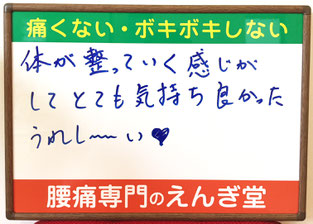 痛くない・ボキボキしない
体が整っていく感じが
してとても気持ち良かった
うれし〜〜い♥
腰痛専門のえんぎ堂